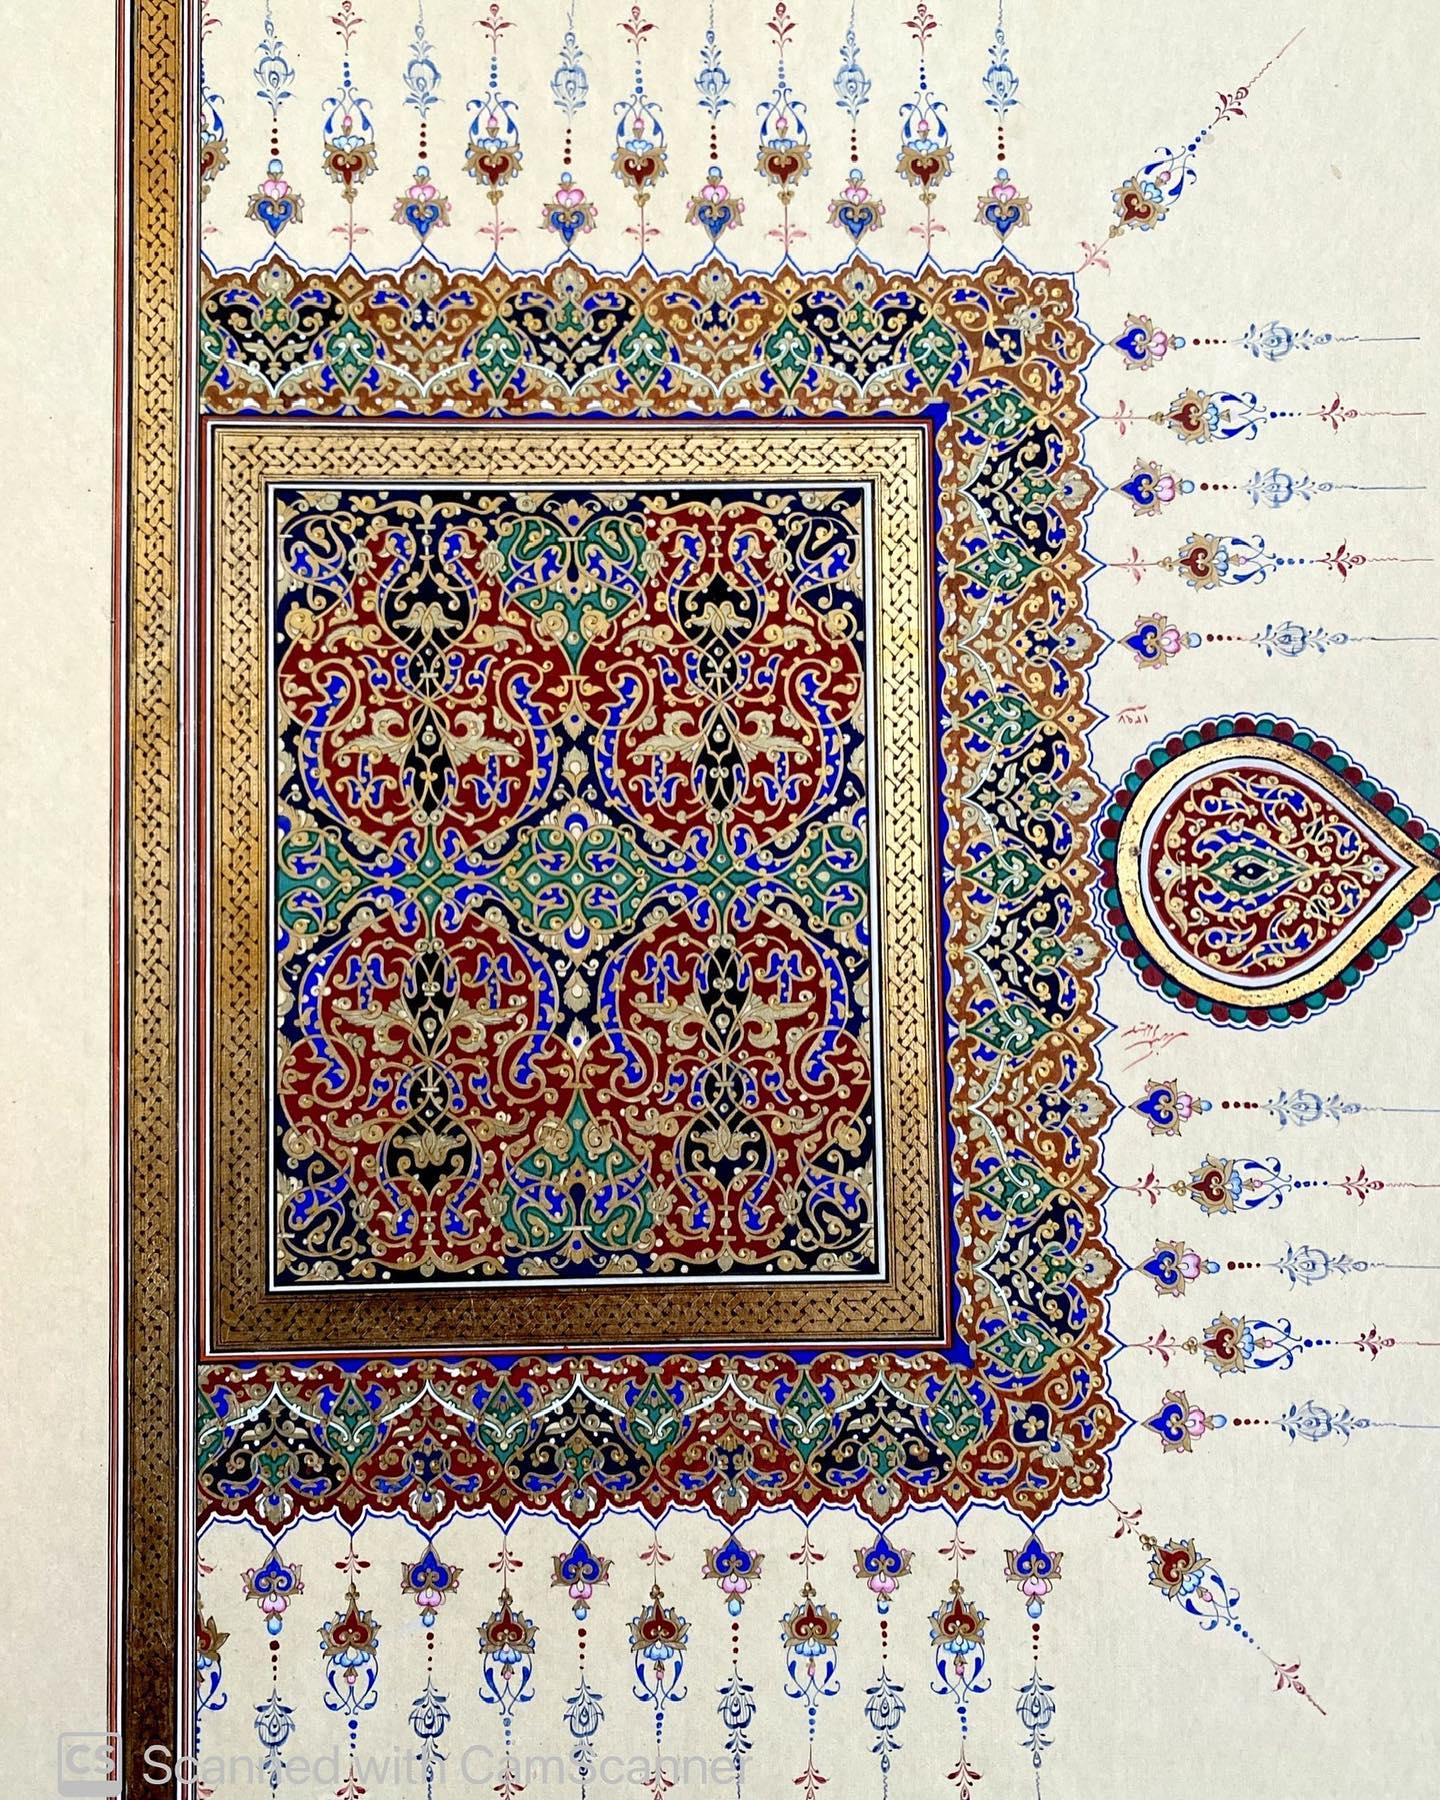 ۱۳۹۷
CS Scanned with CamScanner